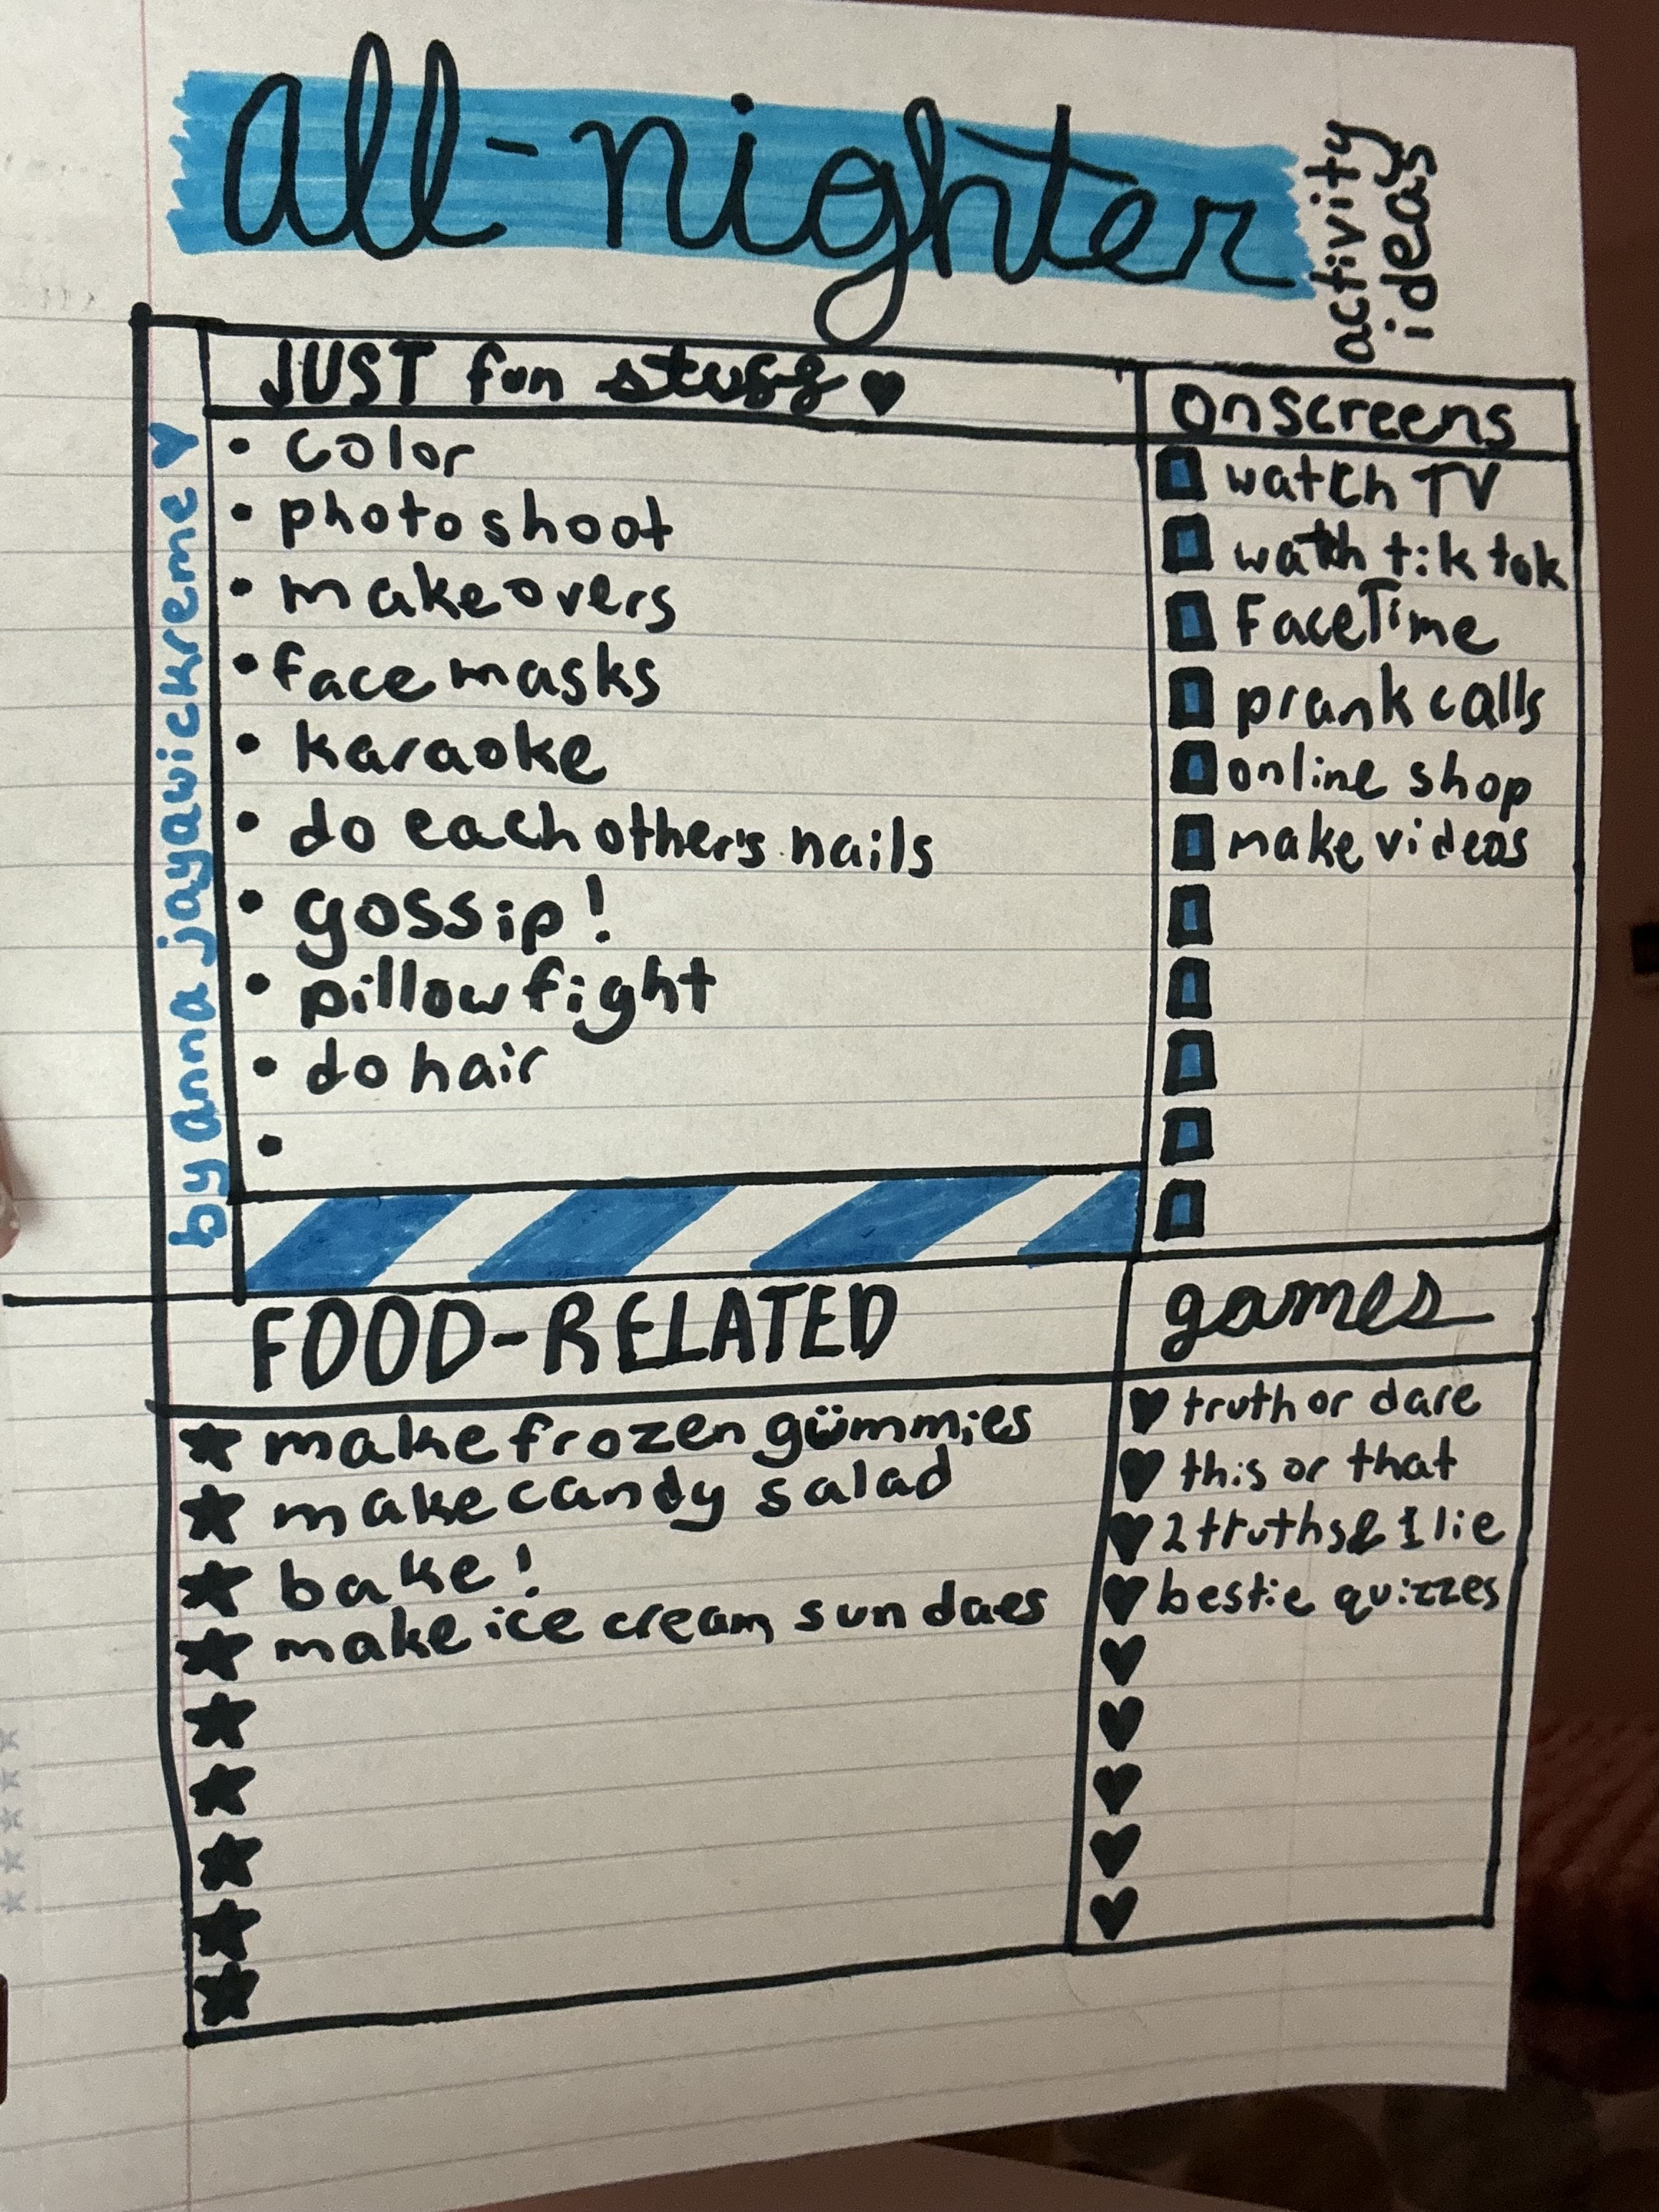 all-nighter
activity
ideas
by anna jayawickreme
JUST fun stuff
color
photo shoot
makeovers
face masks
karaoke
do each other's nails
gossip!
pillow fight
do hair
onscreens
watch TV
watch tik tok
FaceTime
prank calls
online shop
make videos
FOOD-RELATED
make frozen gümmies
make candy salad
bake!
make ice cream sundaes
games
truth or dare
this or that
2 truths & 1 lie
bestie quizzes